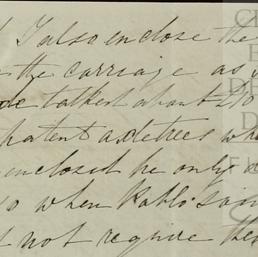 I also enclose the
the carriage as
talked about to
patent axletrees wh
enclosed he only
so when Pablo
not require the